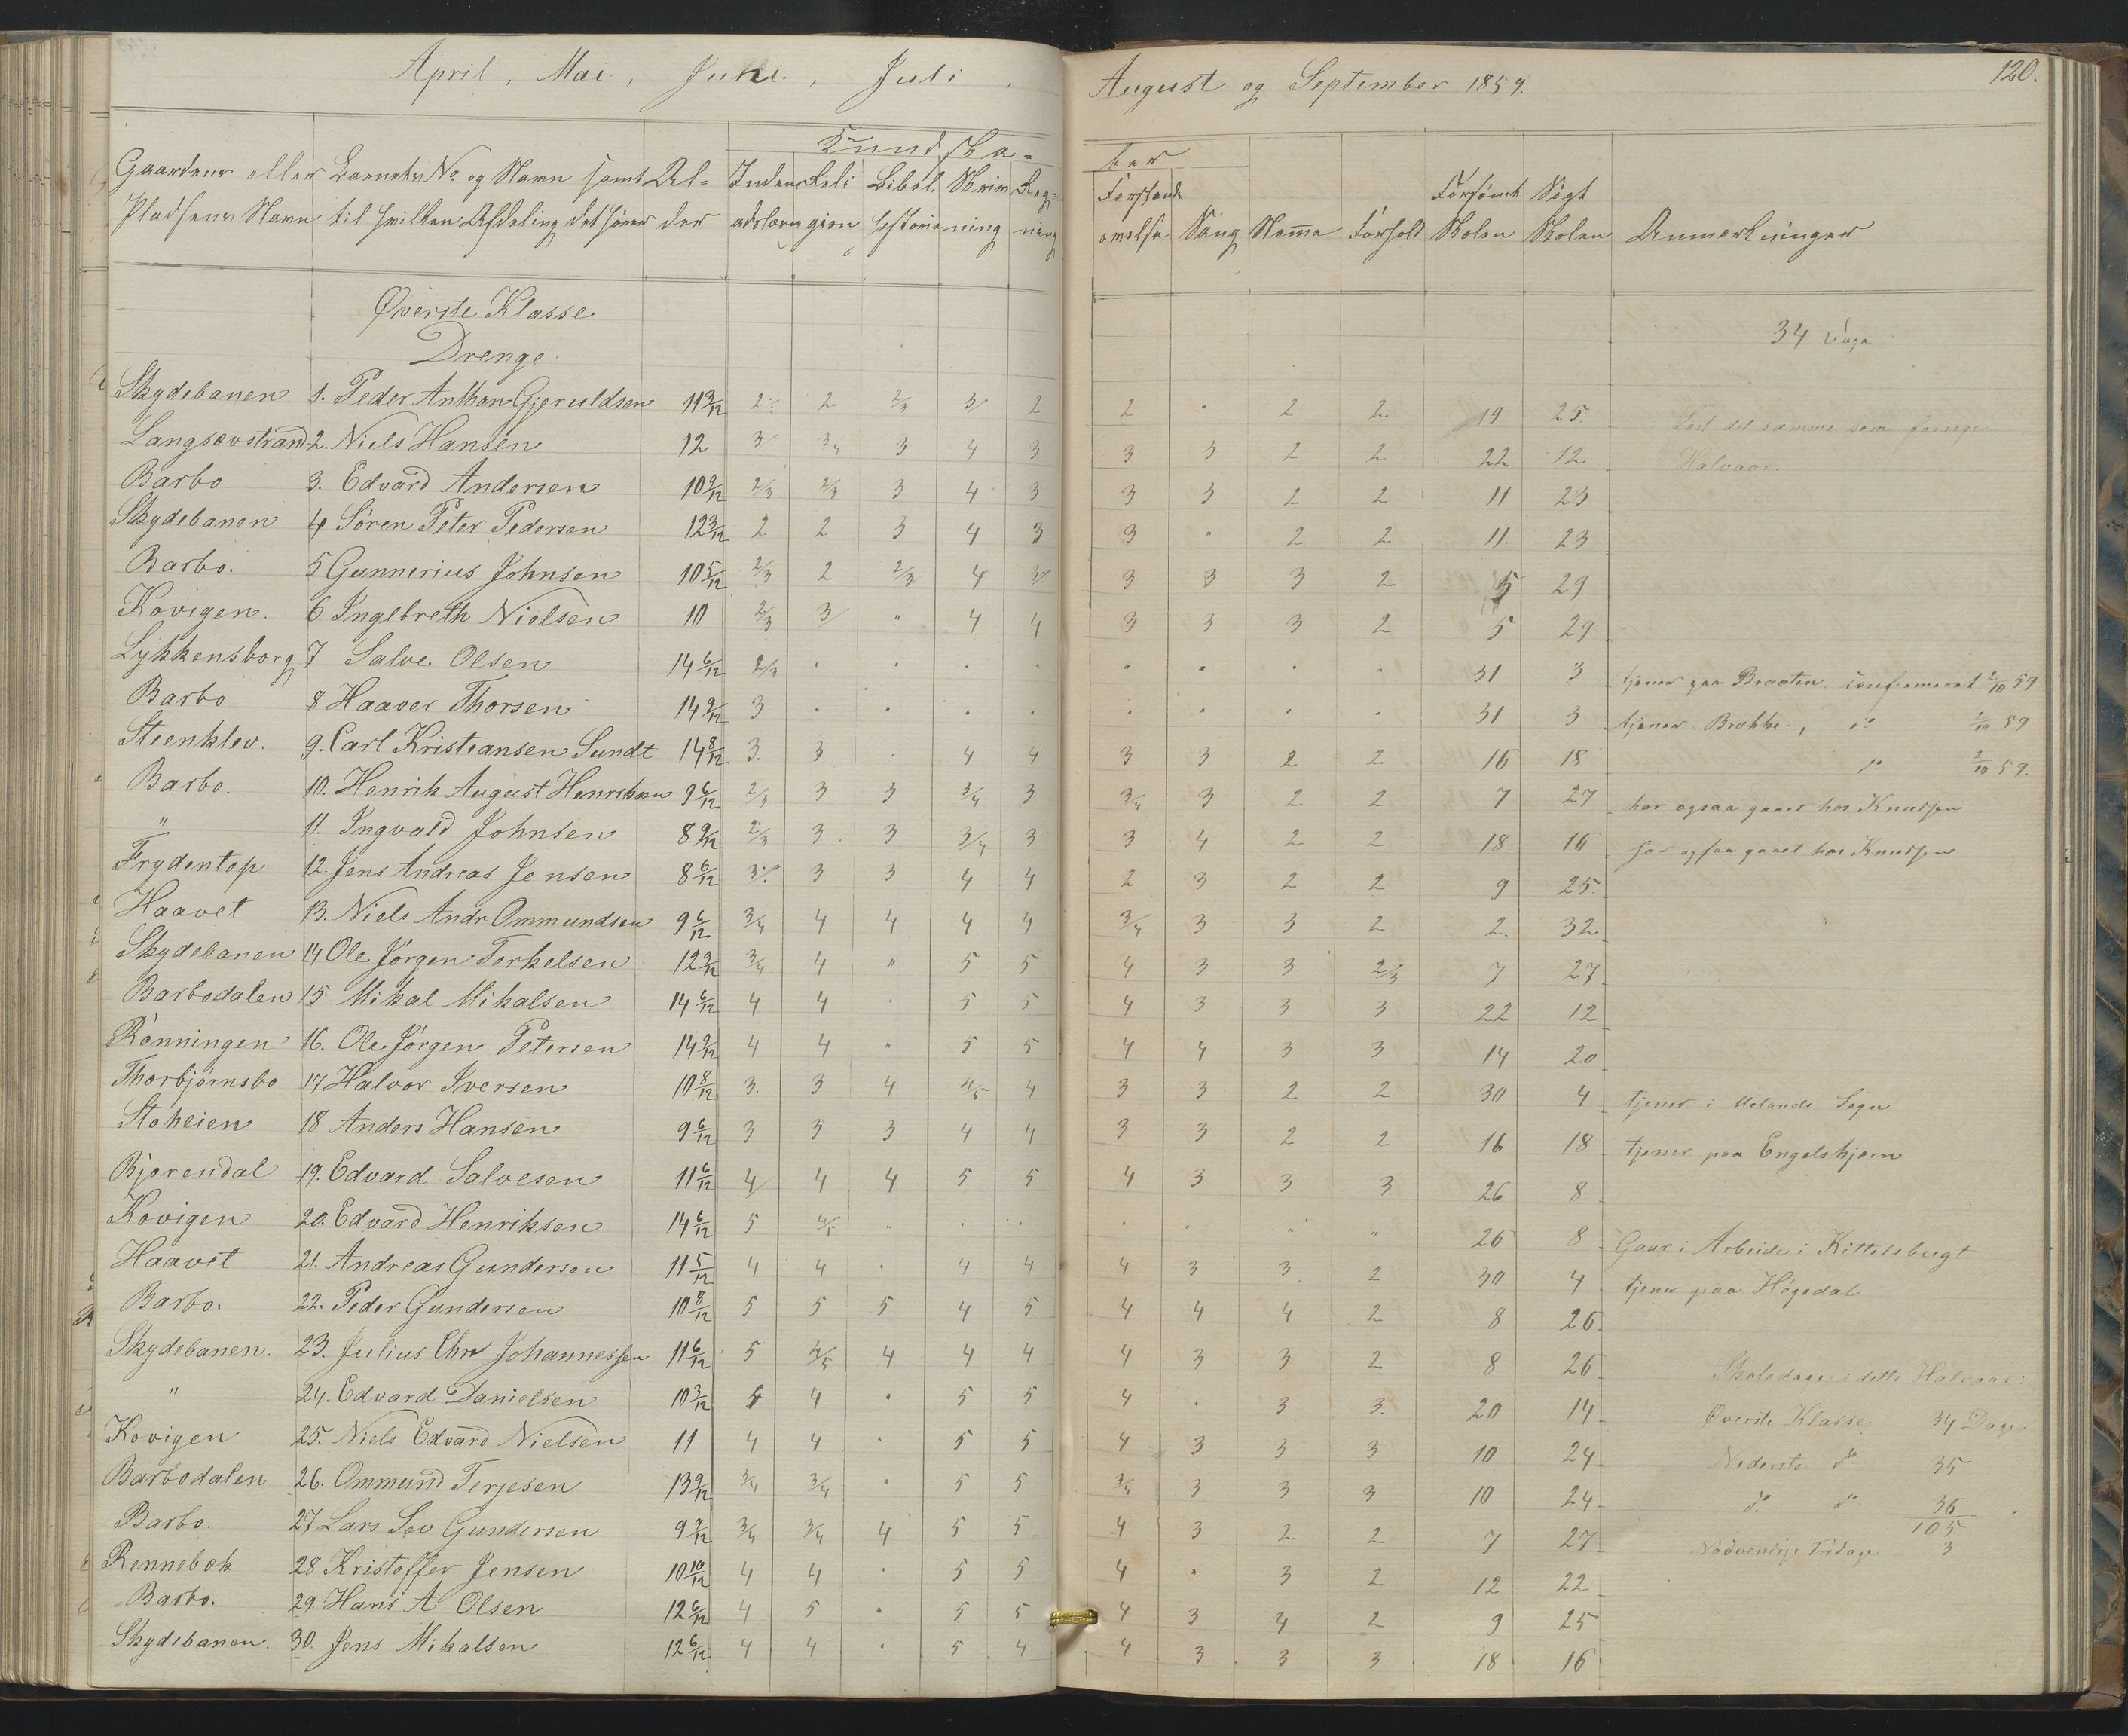 April, Mai, Juni, Juli,
August og September 1859.
120.
Kundska=
ber
Gaardens eller Barnets No og Navn samt Al= Inden Reli Bibel Skriv Reg=
Pladsens Navn til hvilken Afdeling det hører der adslæsn gion historie ning ning
Forstands Forsømt Søgt
øvelse Sang Nemme Forhold Skolen Skolen Anmærkninger
Øverste Klasse
Drenge
34 Dage
Skydebanen 1. Peder Anthon Gjeruldsen 11 9/12 2 2 2/3 3/ 2 2 " 2 2 19 25 Læst det samme som forrige
Langsævstrand 2. Niels Hansen 12 3 3/4 3 4 3 3 3 2 2 22 12 Halvaar.
Barbo. 3. Edvard Andersen 10 9/12 2/3 2/3 3 4 3 3 3 2 2 11 23
Skydebanen 4 Søren Peter Pedersen 12 3/12 2 2 3 4 3 3 " 2 2 11 23
Barbo. 5 Gunnerius Johnsen 10 5/12 2/3 2 2/3 4 3/ 3 3 3 2 5 29
Kovigen. 6 Ingebreth Nielsen 10 2/3 3/ " 4 4 3 3 3 2 5 29
Lykkensborg 7 Salve Olsen 14 6/12 2/3 " " " " " " " " 31 3 tjener paa Braaten, confirmeret 2/10 59
Barbo 8 Haaver Thorsen 14 9/12 3 " " " " " " " " 31 3 tjener Brække, do 2/10 59
Steenklev. 9. Carl Kristiansen Sundt 14 8/12 3. 3 " 4 4 3 3 2 2 16 18 do 2/10 59.
Barbo. 10. Henrik August Henriksen 9 6/12 2/3 3 3 3/4 3 3/4 3 2 2 7 27 har ogsaa gaaet hos Knudsen
" 11. Ingvald Johnsen 8 9/12 2/3 3 3 3/4 3 3 4 2 2 18 16 har ogsaa gaaet hos Knudsen
Frydentop 12. Jens Andreas Jensen 8 6/12 3/ 3 3 4 4 2 3 2 2 9 25
Haavet 13. Niels Andr Ommundsen 9 6/12 3/4 4 4 4 4 3/4 3 3 2 2. 32
Skydebanen 14 Ole Jørgen Terkelsen 12 9/12 3/4 4 " 5 5 4 3 3 2/3 7 27
Barbodalen 15 Mikal Mikalsen 14 6/12 4 4 " 5 5 4 3 3 3 22 12
Rønningen 16. Ole Jørgen Petersen 14 9/12 4 4 " 5 5 4 4 3 3 14 20
Thorbjørnsbo 17 Halvor Iversen 10 8/12 3. 3 4 4/5 4 3 3 2 2 30 4 tjener i Molands Sogn
Støheien 18 Anders Hansen 9 6/12 3 3 3 4 4 3 3 2 2 16 18 tjener paa Engelskjørn
Bjorendal 19. Edvard Salvesen 11 6/12 4/ 4 4 5 5 4 3 3 3. 26 8
Kovigen 20. Edvard Henriksen 14 6/12 5 4/5 " " " " " " " 26 8 Gaar i Arbeide i Kittelsbugt
Haavet 21. Andreas Gundersen 11 5/12 4 4 " 4 4 4 3 3 2 30 4 tjener paa Høgedal
Barbo. 22. Peder Gundersen 10 8/12 5 5 5 4 5 4 4 4 2 8 26
Skydebanen. 23. Julius Chr Johannessen 11 6/12 5 4/5 4 4 4 4 3 3 2 8 26 Skoledage i dette Halvaar:
" 24. Edvard Danielsen 10 3/12 4 4 " 5 5 4 " 3 3. 20 14 Øverste Klasse 34 Dage
Kovigen 25. Niels Edvard Nielsen 11 4 4 " 5 5 4 3 3 3 10 24 Nederste do 35
Barbodalen 26. Ommund Terjesen 13 9/12 3/4 3/4 " 5 5 3/4 3 3 3 10 24 do do 36
105
Barbo. 27 Lars Sev Gundersen 9 9/12 3/4 3/4 4 5 5 4 3 2 2 7 27 Nødvendige Fridage 3
Rennebæk 28 Kristoffer Jensen 10 10/12 4 4 " 5 5 4 " 3 2 12 22
Barbo. 29. Hans A Olsen 12 6/12 4 5 " 5 5 4 3 4 2 9 25
Skydebanen. 30. Jens Mikalsen 12 6/12 4 4 " 5 4 4 3 3 3 18 16